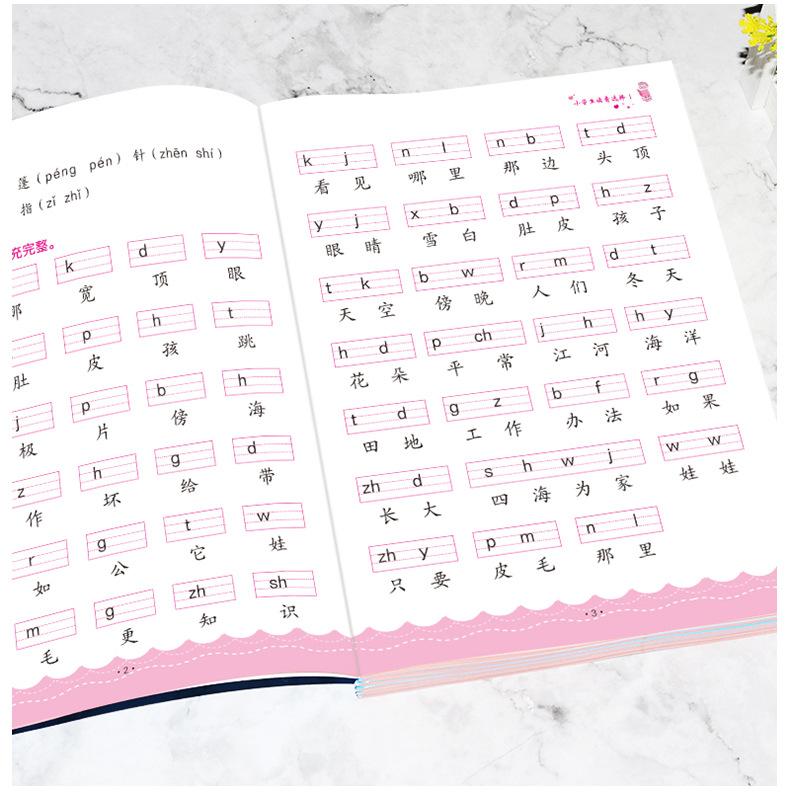 蓬(péng pén) 针(zhēn shí)
指(zǐ zhǐ)
充完整。
k d y
那 宽 顶 眼
p h t
肚 皮 孩 跳
j p b h
极 片 傍 海
z h g d
作 坏 给 带
r g t w
如 公 它 娃
m g zh sh
毛 更 知 识
·2·
k j n l n b t d
看 见 哪 里 那 边 头 顶
y j x b d p h z
眼 睛 雪 白 肚 皮 孩 子
t k b w r m d t
天 空 傍 晚 人 们 冬 天
h d p ch j h h y
花 朵 平 常 江 河 海 洋
t d g z b f r g
田 地 工 作 办 法 如 果
zh d s h w j w w
长 大 四 海 为 家 娃 娃
zh y p m n l
只 要 皮 毛 那 里
·3·